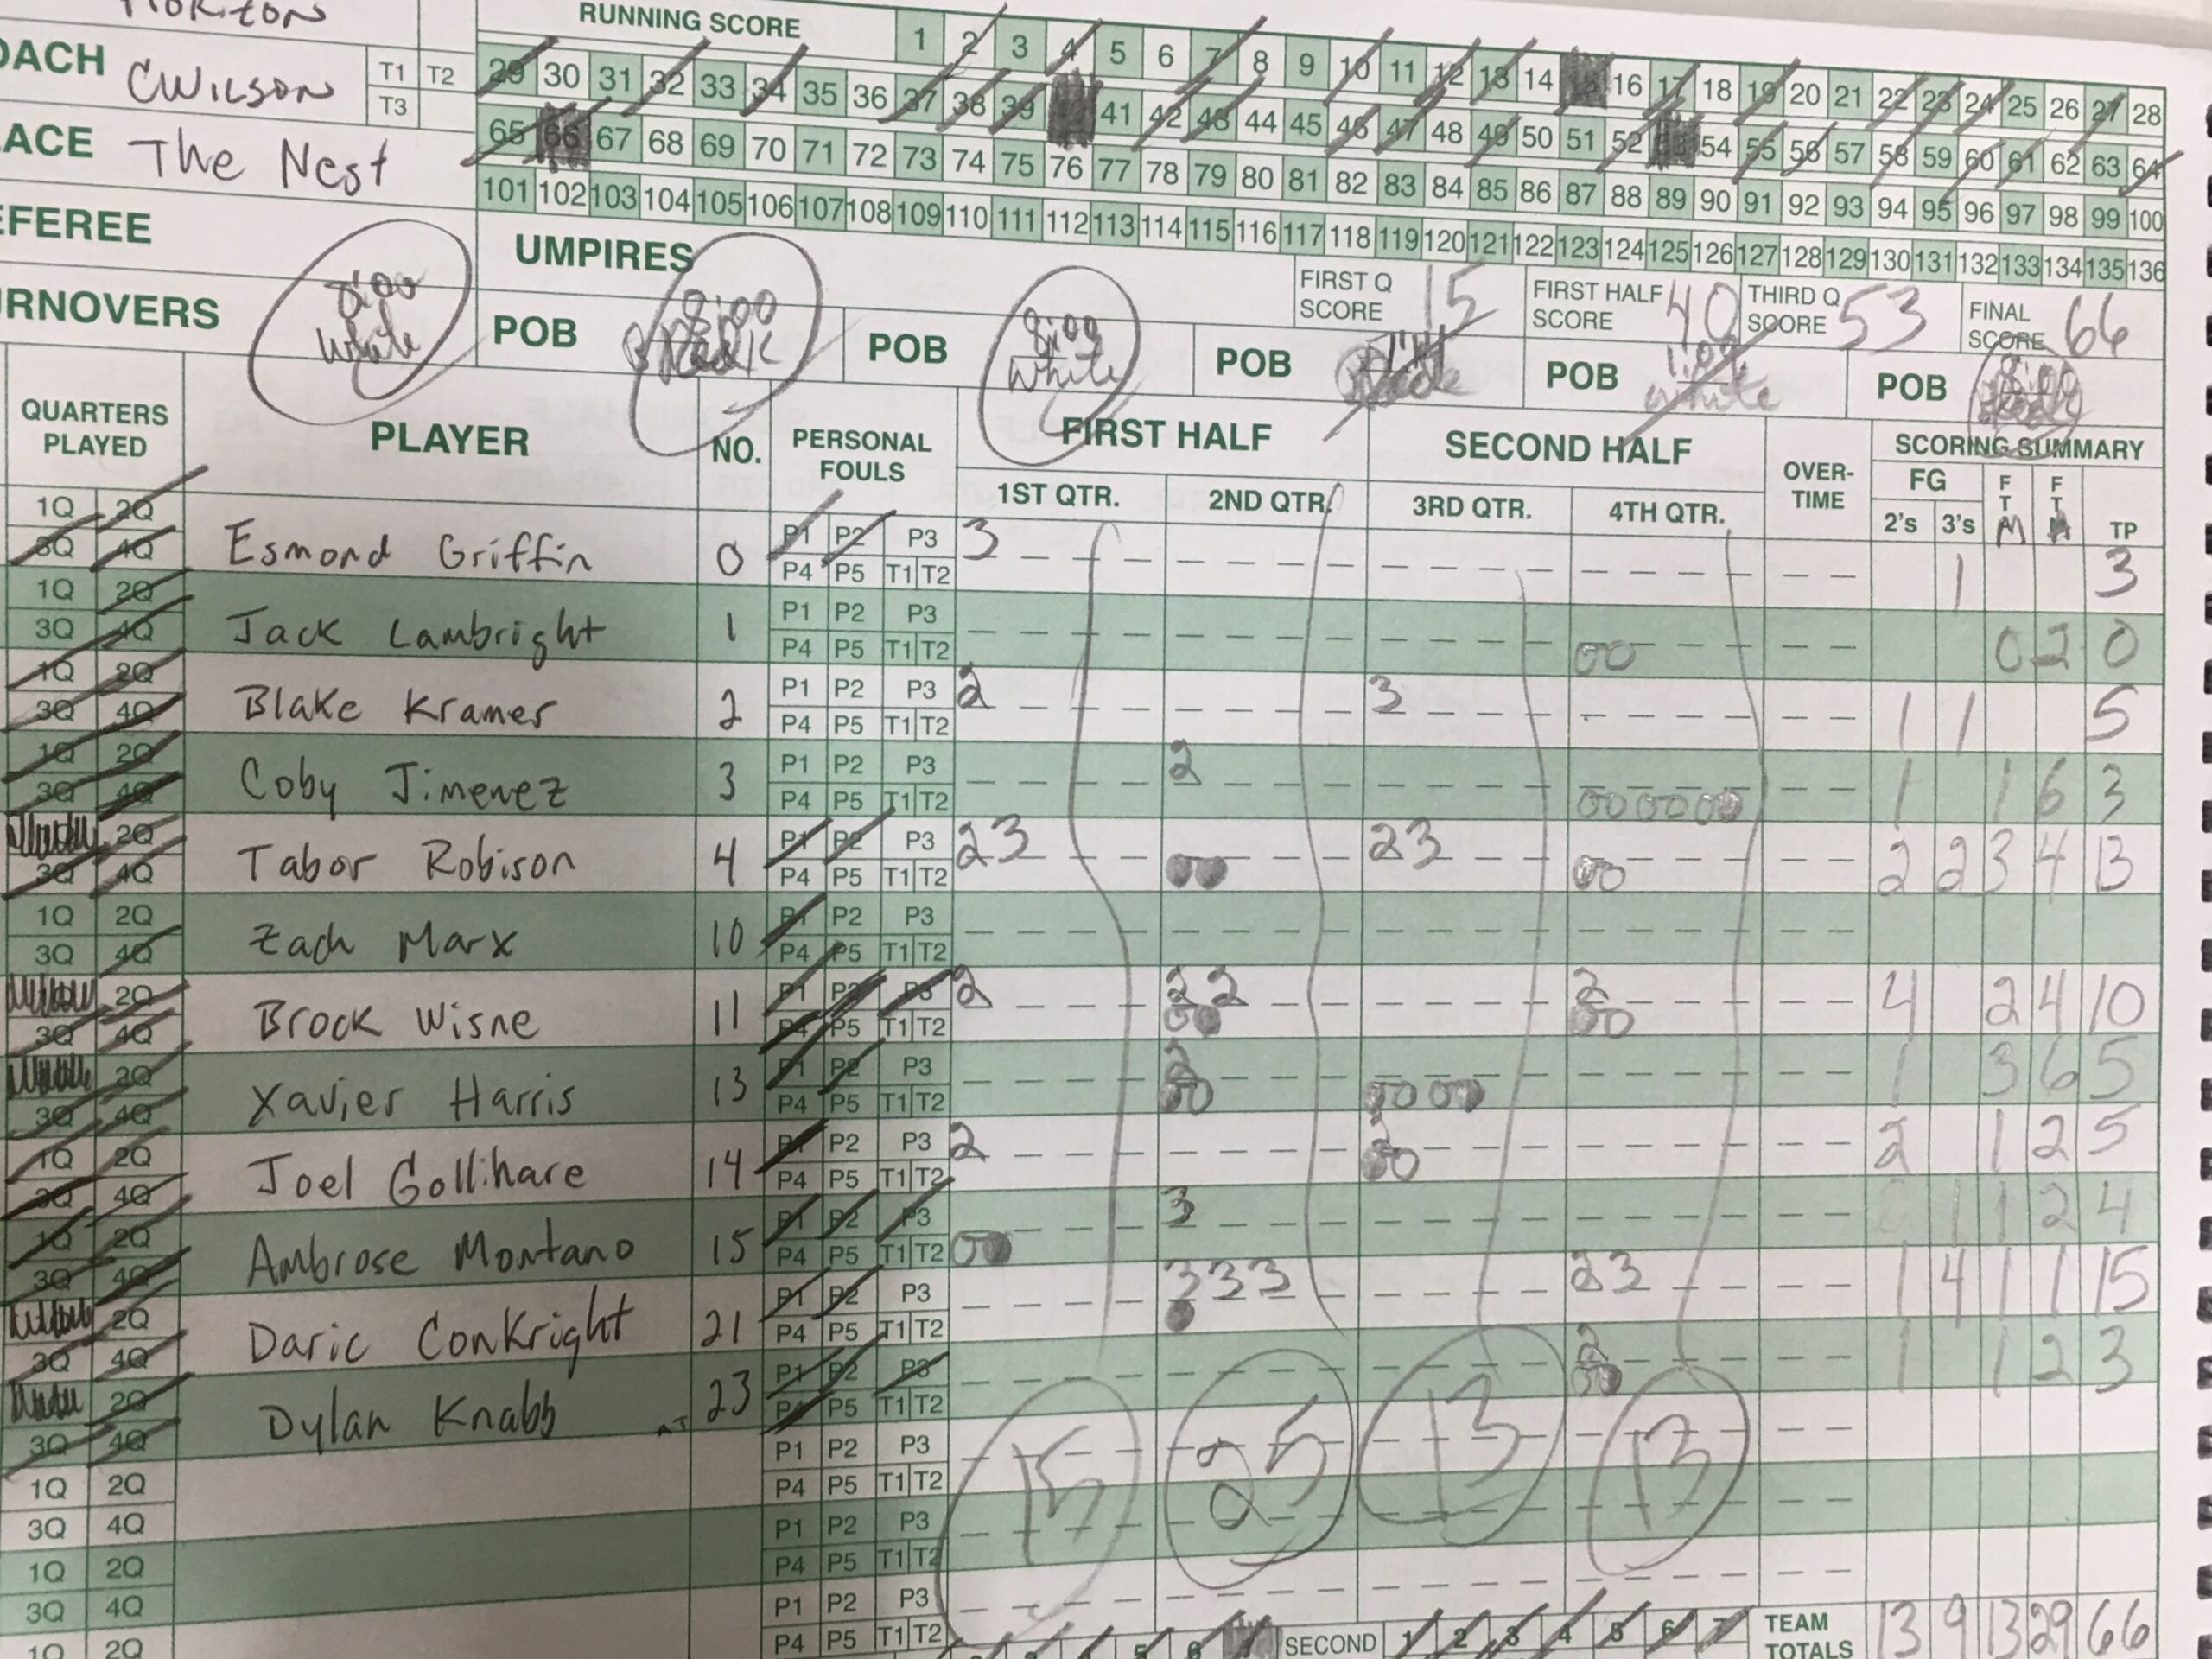 RUNNING SCORE 1 2 3 4 5 6 7 8 9 10 11 12 13 14 15 16 17 18 19 20 21 22 23 24 25 26 27 28
OACH CWILSON T1 T2 T3
29 30 31 32 33 34 35 36 37 38 39 40 41 42 43 44 45 46 47 48 49 50 51 52 53 54 55 56 57 58 59 60 61 62 63 64
ACE The Nest
65 66 67 68 69 70 71 72 73 74 75 76 77 78 79 80 81 82 83 84 85 86 87 88 89 90 91 92 93 94 95 96 97 98 99 100
101 102 103 104 105 106 107 108 109 110 111 112 113 114 115 116 117 118 119 120 121 122 123 124 125 126 127 128 129 130 131 132 133 134 135 136
EFEREE UMPIRES
FIRST Q SCORE 15 FIRST HALF SCORE 40 THIRD Q SCORE 53 FINAL SCORE 66
RNOVERS 8:00 White POB 8:00 POB 8:00 White POB POB white POB
QUARTERS PLAYED PLAYER NO. PERSONAL FOULS FIRST HALF SECOND HALF OVER-TIME SCORING SUMMARY
1ST QTR. 2ND QTR. 3RD QTR. 4TH QTR. FG 2's 3's FTM FT TP
1Q 2Q 3Q 4Q Esmond Griffin 0 P1 P2 P3 P4 P5 T1 T2 3 1 3
1Q 2Q 3Q 4Q Jack Lambright 1 P1 P2 P3 P4 P5 T1 T2 00 0 2 0
1Q 2Q 3Q 4Q Blake Kramer 2 P1 P2 P3 P4 P5 T1 T2 2 3 1 1 5
1Q 2Q 3Q 4Q Coby Jimenez 3 P1 P2 P3 P4 P5 T1 T2 2 000000 1 1 6 3
2Q 3Q 4Q Tabor Robison 4 P1 P2 P3 P4 P5 T1 T2 23 00 23 00 2 2 3 4 13
1Q 2Q 3Q 4Q Zach Marx 10 P1 P2 P3 P4 P5 T1 T2
2Q 3Q 4Q Brock Wisne 11 P1 P2 P3 P4 P5 T1 T2 2 22 00 2 00 4 2 4 10
2Q 3Q 4Q Xavier Harris 13 P1 P2 P3 P4 P5 T1 T2 2 00 0000 1 3 6 5
1Q 2Q 3Q 4Q Joel Gollihare 14 P1 P2 P3 P4 P5 T1 T2 2 2 00 2 1 2 5
1Q 2Q 3Q 4Q Ambrose Montano 15 P1 P2 P3 P4 P5 T1 T2 00 3 1 1 2 4
2Q 3Q 4Q Daric Conkright 21 P1 P2 P3 P4 P5 T1 T2 333 0 23 1 4 1 1 15
2Q 3Q 4Q Dylan Knabb 23 P1 P2 P3 P4 P5 T1 T2 2 00 1 1 2 3
1Q 2Q 3Q 4Q P1 P2 P3 P4 P5 T1 T2 15 25 13 13
1Q 2Q 3Q 4Q P1 P2 P3 P4 P5 T1 T2
1Q 2Q P1 P2 P3 P4 P5 T1 T2
5 6 SECOND 1 2 3 4 5 6 7 TEAM TOTALS 13 9 13 29 66